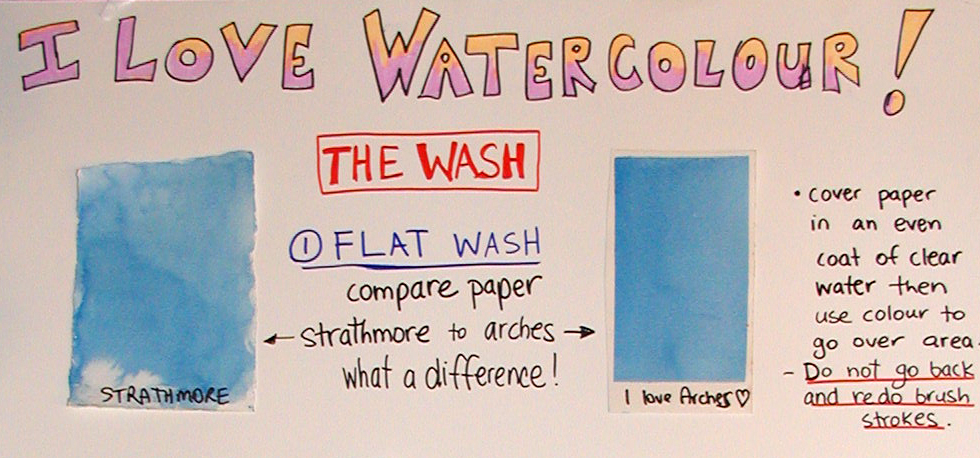 I LOVE WATERCOLOUR!
THE WASH
① FLAT WASH
compare paper
← strathmore to arches →
what a difference!
STRATHMORE
I love Arches♡
• cover paper
in an even
coat of clear
water then
use colour to
go over area.
- Do not go back
and redo brush
strokes.